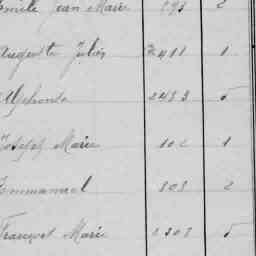 Emile Jean Marie 593 2
Auguste Jules 2411 1
Alphonse 2483 5
Joseph Marie 102 1
Emmanuel 808 2
François Marie 2308 5